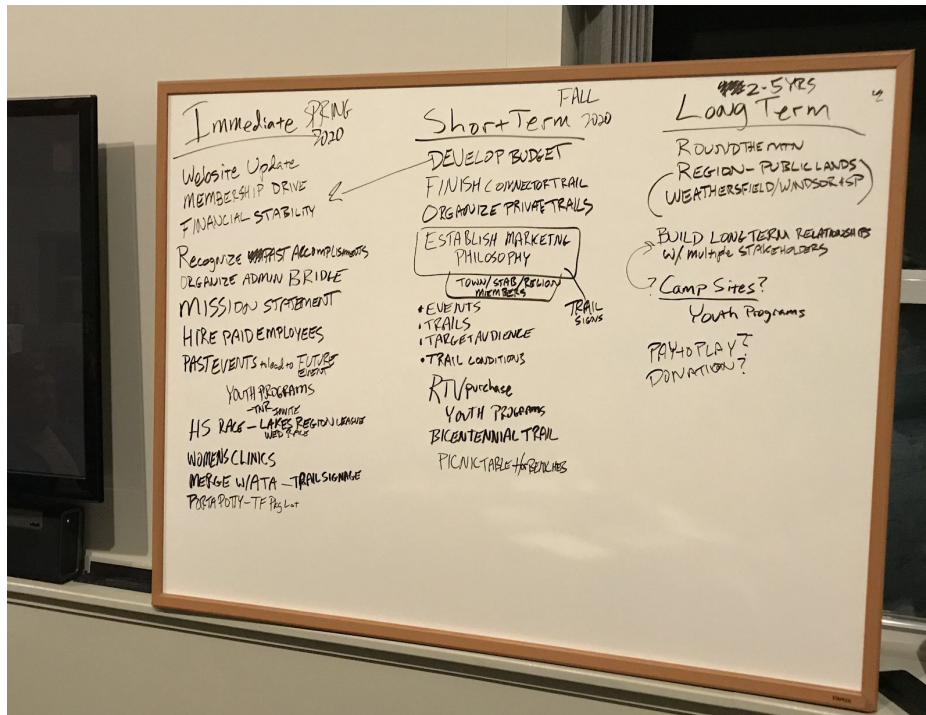 Immediate SPRING
2020
Website Update
MEMBERSHIP DRIVE
FINANCIAL STABILITY
Recognize PAST ACCOMPLISHMENTS
ORGANIZE ADMIN BRIDGE
MISSION STATEMENT
HIRE PAID EMPLOYEES
PAST EVENTS to lead to FUTURE
EVENT
YOUTH PROGRAMS
-TNR INVITE
HS RACE - LAKES REGION LEAGUE
WED RACE
WOMENS CLINICS
MERGE W/ATA - TRAIL SIGNAGE
PORTA POTTY - TF Pkg Lot
FALL
Short Term 2020
DEVELOP BUDGET
FINISH CONNECTOR TRAIL
ORGANIZE PRIVATE TRAILS
ESTABLISH MARKETING
PHILOSOPHY
TOWN/STAB/REGION
MEMBERS
TRAIL
SIGNS
• EVENTS
• TRAILS
• TARGET AUDIENCE
• TRAIL CONDITIONS
RTV purchase
YOUTH PROGRAMS
BICENTENNIAL TRAIL
PICNIC TABLE BENCHES
2-5 YRS
Long Term
ROUND THE MTN
REGION - PUBLIC LANDS
WEATHERSFIELD/WINDSOR+SP
BUILD LONG TERM RELATIONSHIPS
W/ multiple STAKEHOLDERS
? Camp Sites?
Youth Programs
PAY to PLAY?
DONATION?